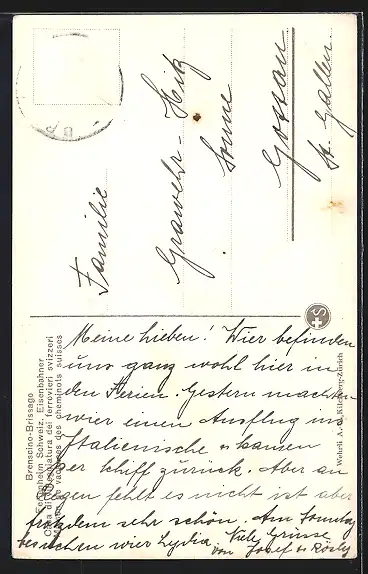 Familie
Grawehr-Hitz
Sonne
Gossau
St. Gallen
Brenscino-Brissago
Ferienheim Schweiz. Eisenbahner
Casa di villeggiatura dei ferrovieri svizzeri
vacances des cheminots suisses
Wehrli A.-G. Kilchberg-Zürich
Meine Lieben! Wier befinden
uns ganz wohl hier in
den Ferien. Gestern machten
wier einen Ausflug ins
Italienische u kamen
per Schiff zurück. Aber an
Regen fehlt es nicht ist aber
trotzdem sehr schön. Am Sonntag
besuchen wier Lydia. Viele Grüsse
von Josef u Rösly